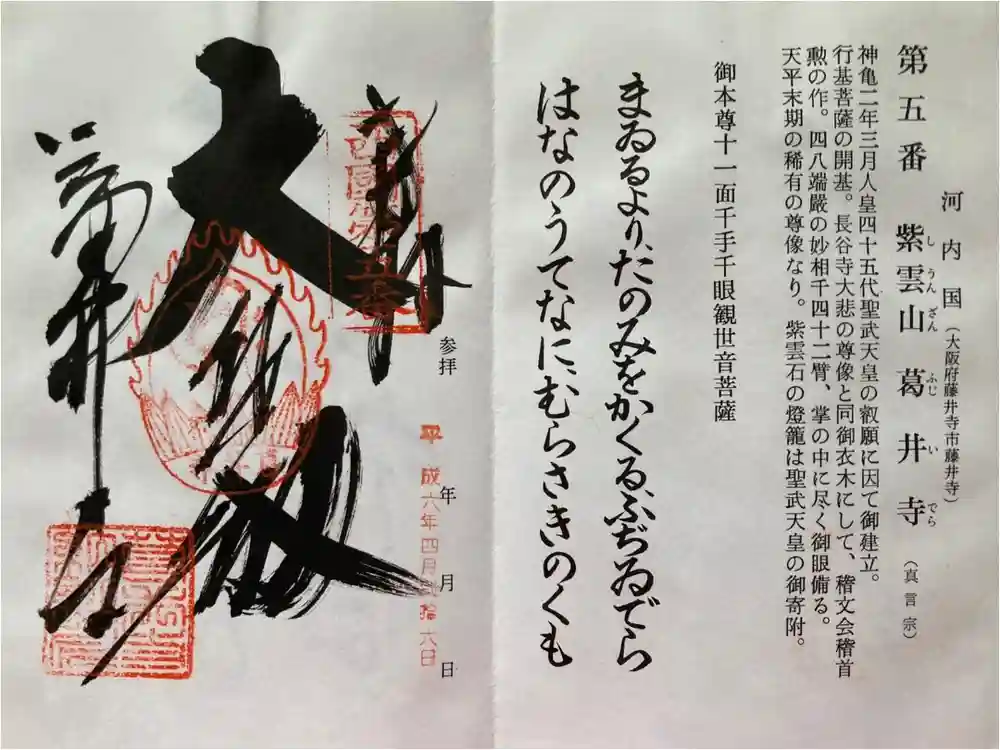 河内国(大阪府藤井寺市藤井寺)
第五番 紫雲山葛井寺(真言宗)
し うん ざん ふじ い でら
神亀二年三月人皇四十五代聖武天皇の叡願に因て御建立。
行基菩薩の開基。長谷寺大悲の尊像と同御衣木にして、稽文会稽首
勲の作。四八端厳の妙相千四十二臂、掌の中に尽く御眼備る。
天平末期の稀有の尊像なり。紫雲石の燈籠は聖武天皇の御寄附。
御本尊十一面千手千眼観世音菩薩
まゐるより、たのみをかくるふぢゐでら
はなのうてなに、むらさきのくも
参拝 年 月 日
平成六年四月拾六日
奉拝
西国第五番
大悲殿
葛井寺